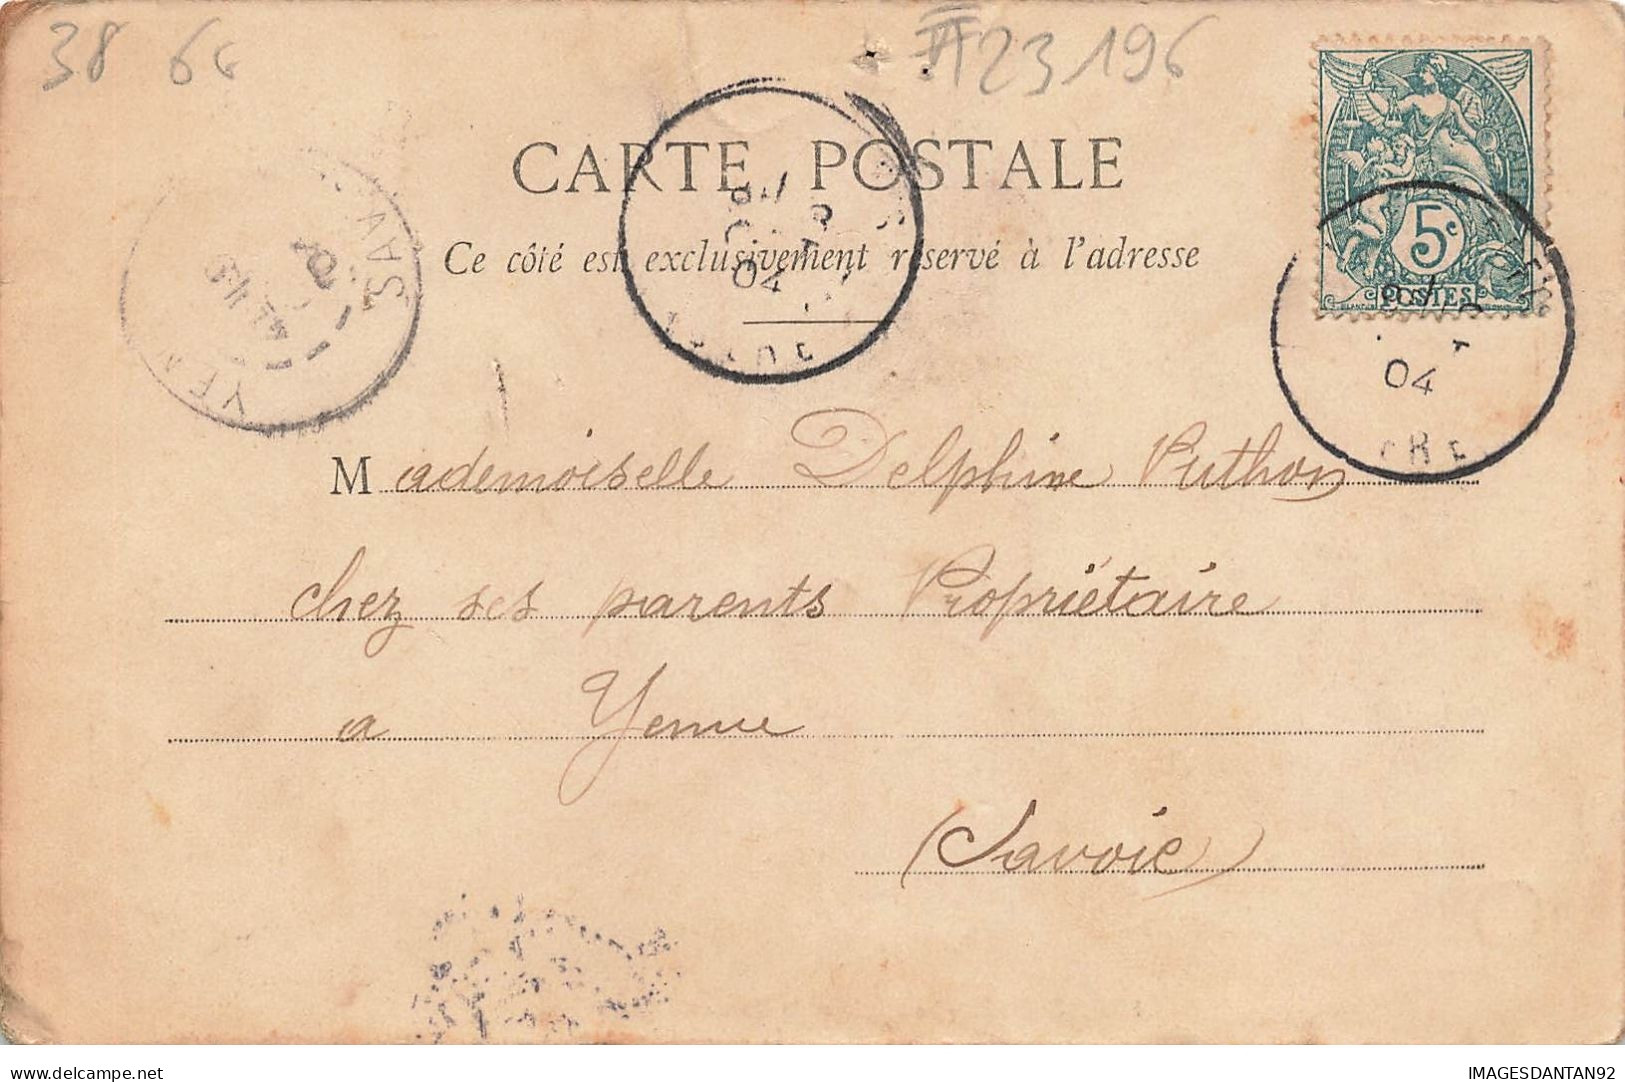 38 66
23196
CARTE POSTALE
Ce côté est exclusivement réservé à l'adresse
5c
POSTES
04
04
Mademoiselle Delphine Puthon
chez ses parents Propriétaire
a Yenne
Savoie
IMAGESDANTAN92